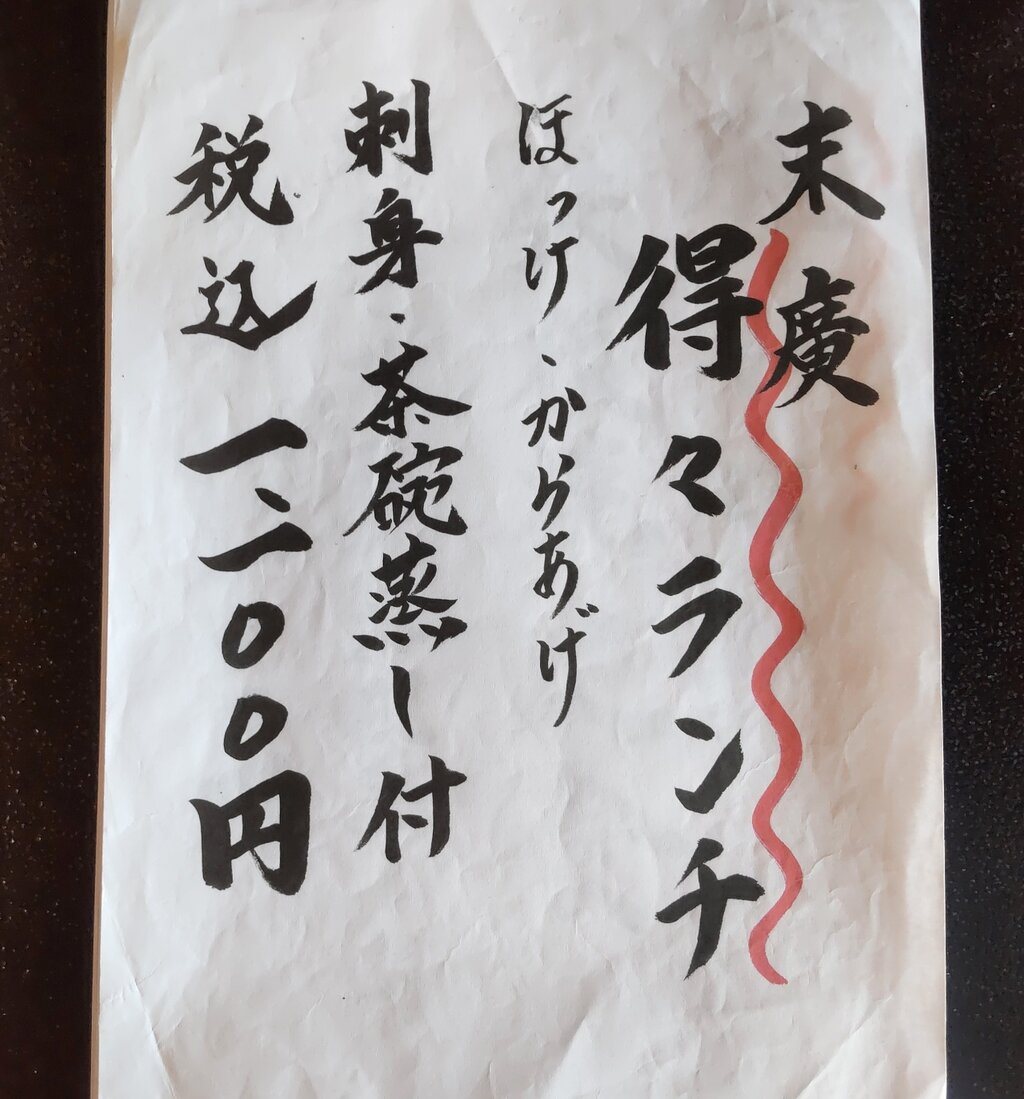 末廣
得々ランチ
ほっけ、からあげ
刺身、茶碗蒸し付
税込一、二〇〇円